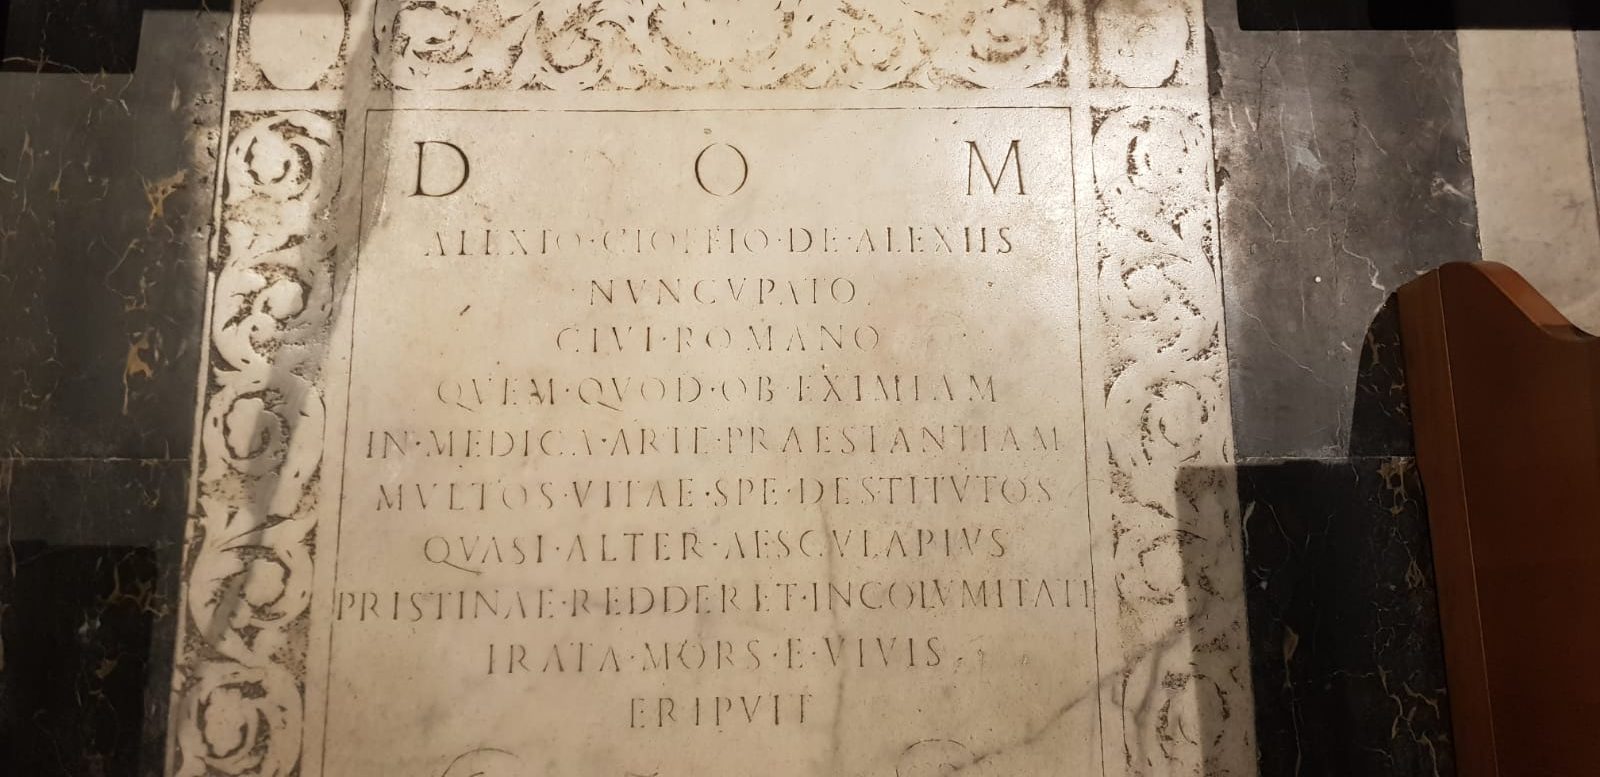 D O M
ALEXIO·CIOFFIO·DE·ALEXIIS
NVNCVPATO
CIVI·ROMANO
QVEM·QVOD·OB·EXIMIAM
IN·MEDICA·ARTE·PRAESTANTIAM
MVLTOS·VITAE·SPE·DESTITVTOS
QVASI·ALTER·AESCVLAPIVS
PRISTINAE·REDDERET·INCOLVMITATI
IRATA·MORS·E·VIVIS
ERIPVIT